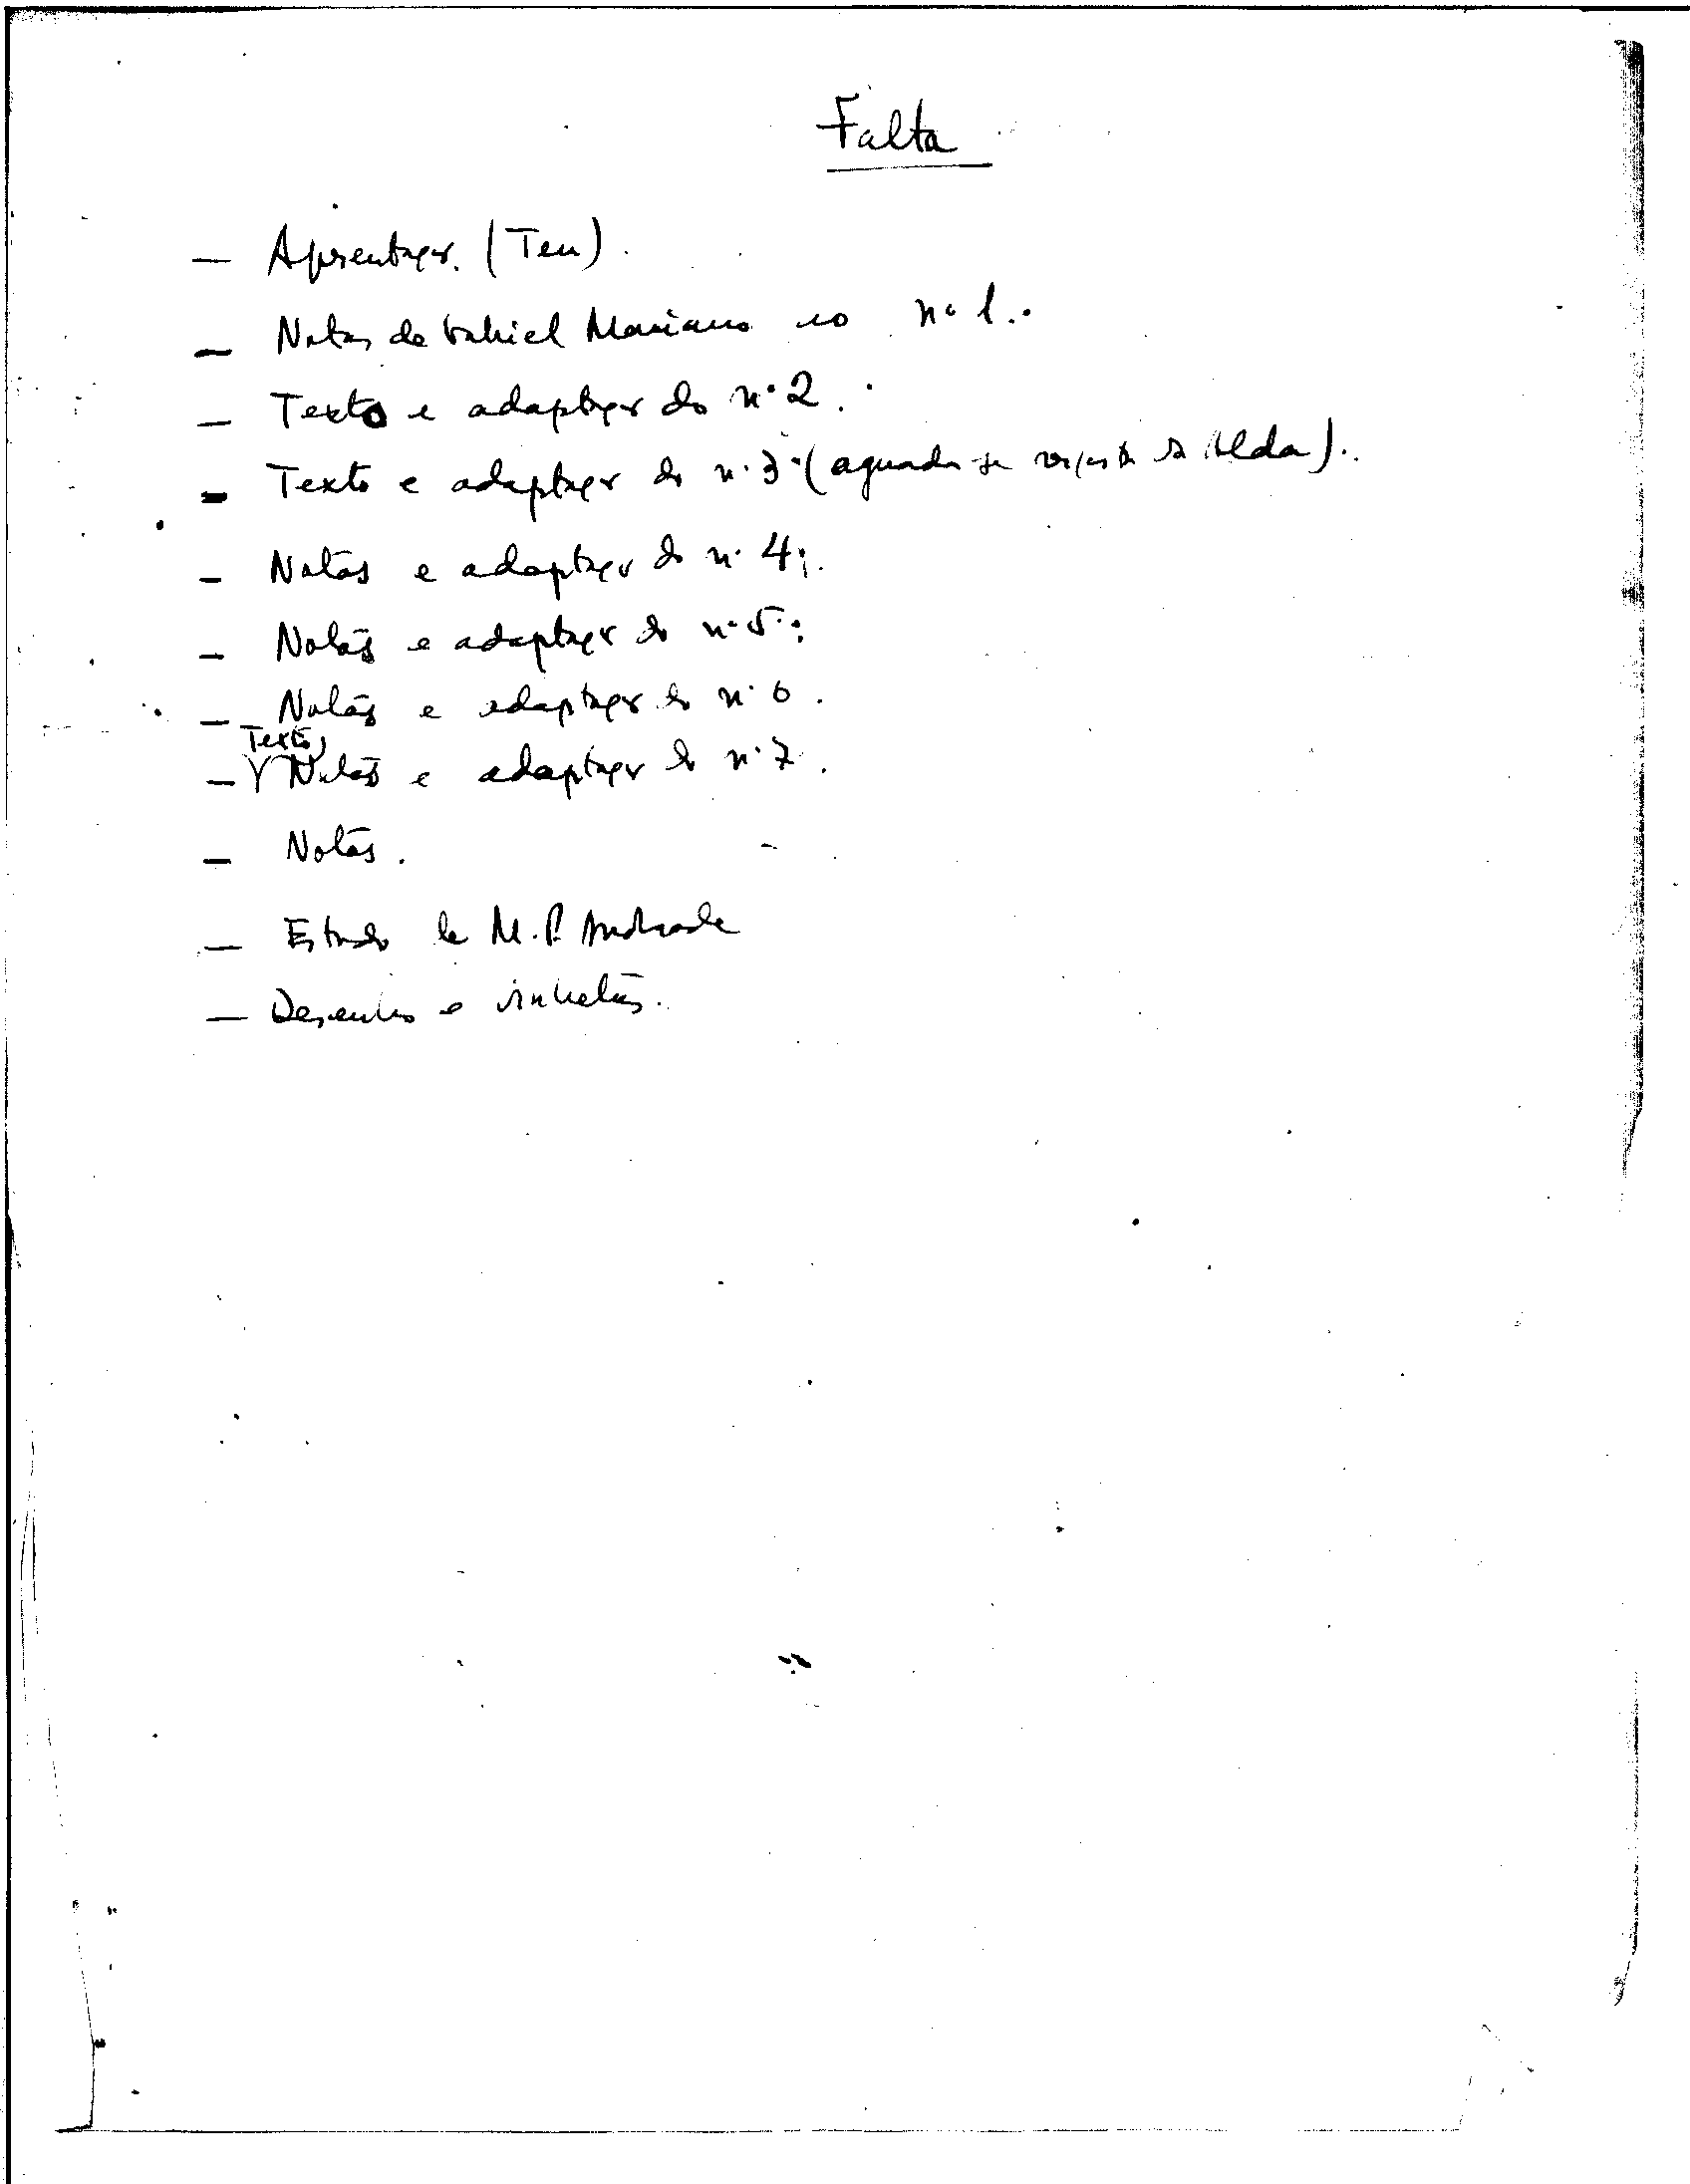 Falta
— Apresentação. (Ten).
— Notas de Gabriel Mariano ao nº 1.
— Texto e adaptação do nº 2.
— Texto e adaptação do nº 3 (aguarda-se resposta da Alda).
— Notas e adaptação do nº 4.
— Notas e adaptação do nº 5.
— Notas e adaptação do nº 6.
— Texto, Notas e adaptação do nº 7.
— Notas.
— Estudo de M. P. Andrade
— Desenhos e vinhetas.